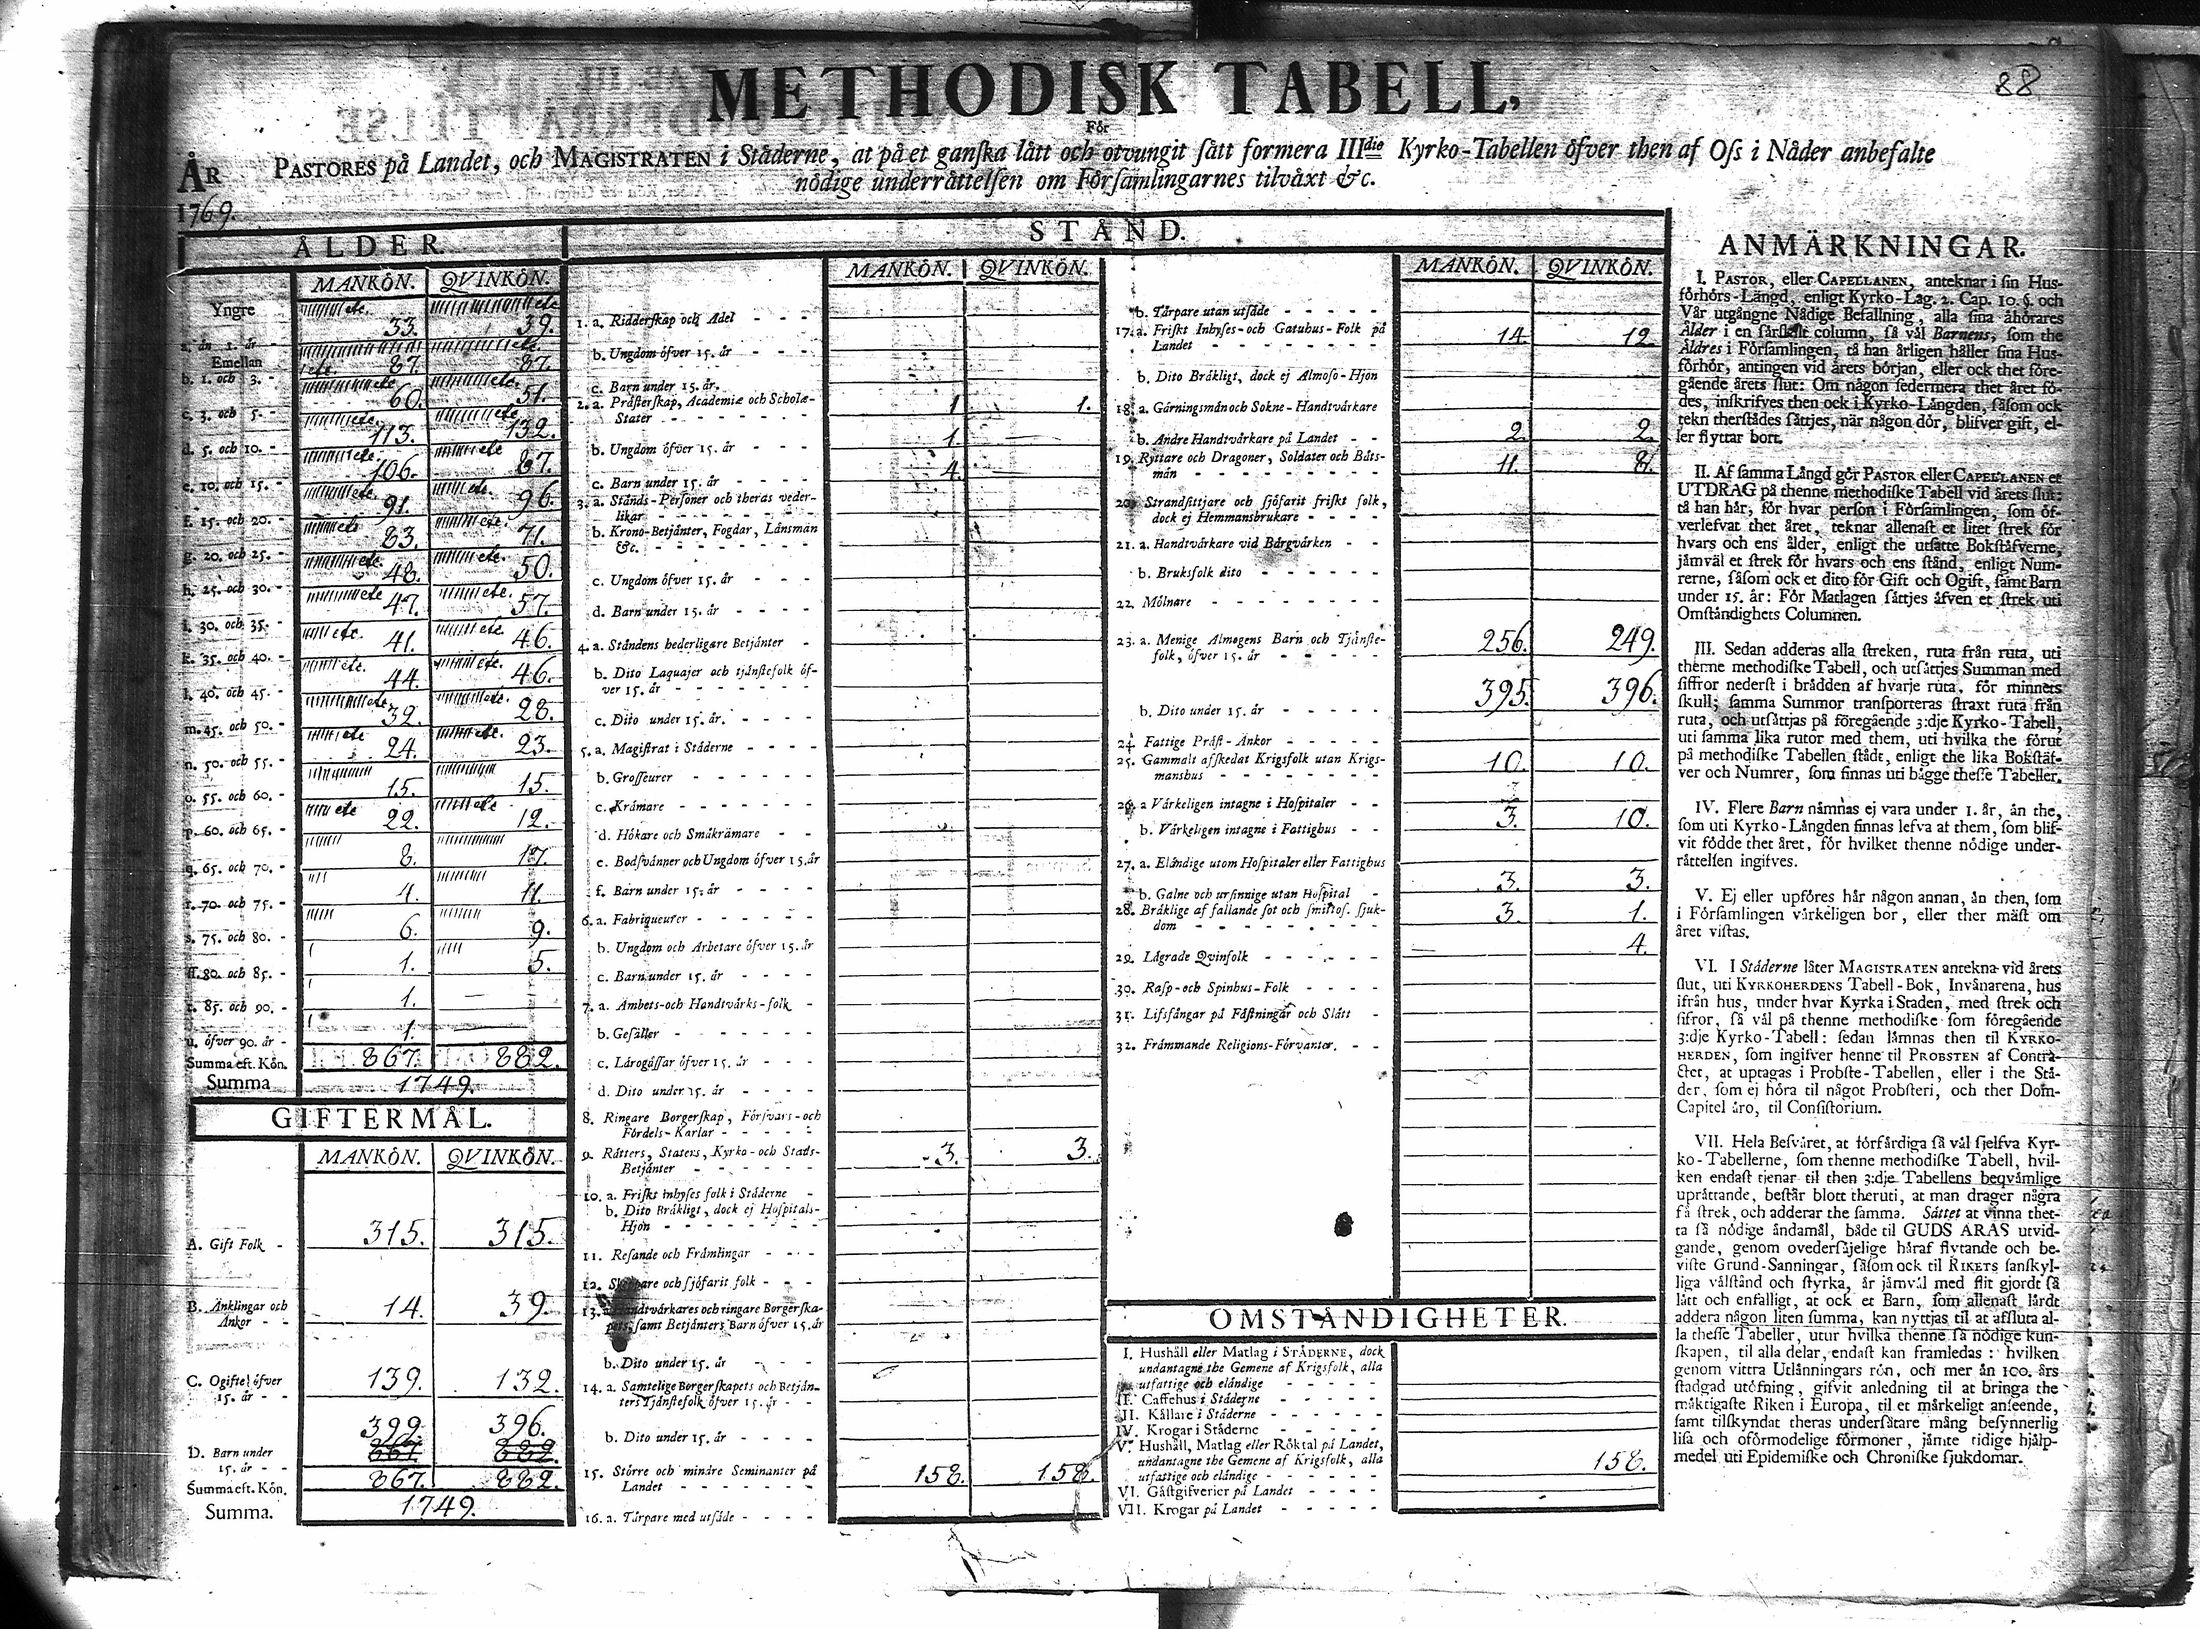 88
METHODISK TABELL,
För
ÅR PASTORES på Landet, och MAGISTRATEN i Städerne, at på et ganſka lått och otvungit ſått formera IIIdie Kyrko-Tabellen öfver then af Oſs i Nåder anbefalte
nödige underråttelſen om Förſamlingarnes tilvåxt &c.
1769.
ÅLDER.
MANKÖN. QVINKÖN.
Yngre
a. än 1. år - 33. 39.
Emellan
b. 1. och 3. - 87. 87.
c. 3. och 5. - 60. 51.
d. 5. och 10. - 113. 132.
e. 10. och 15. - 106. 87.
f. 15. och 20. - 91. 96.
g. 20. och 25. - 83. 71.
h. 25. och 30. - 48. 50.
i. 30. och 35. - 47. 57.
k. 35. och 40. - 41. 46.
l. 40. och 45. - 44. 46.
m. 45. och 50. - 39. 28.
n. 50. och 55. - 24. 23.
o. 55. och 60. - 15. 15.
p. 60. och 65. - 22. 12.
q. 65. och 70. - 8. 17.
r. 70. och 75. - 4. 11.
s. 75. och 80. - 6. 9.
ſſ. 80. och 85. - 1. 5.
t. 85. och 90. - 1. —
u. öfver 90. år - 1.
Summa eft. Kön. 867. 882.
Summa 1749.
GIFTERMÅL.
MANKÖN. QVINKÖN.
A. Gift Folk - 315. 315.
B. Änklingar och
Änkor - - 14. 39.
C. Ogifte öfver
15. år - - 139. 132.
399. 396.
D. Barn under 867 882.
15. år - -
Summa eft. Kön. 867. 882.
Summa. 1749.
STÅND.
MANKÖN. QVINKÖN.
1. a. Ridderſkap och Adel - - -
b. Ungdom öfver 15. år - - -
c. Barn under 15. år.
2. a. Pråſterſkap, Academiæ och Scholæ-
Stater - - - - - 1 1.
b. Ungdom öfver 15. år - - - 1. —
c. Barn under 15. år - - - 4. —
3. a. Stånds-Perſoner och theras veder-
likar - - - - - -
b. Krono-Betjånter, Fogdar, Lånsmån
&c. - - - - - -
c. Ungdom öfver 15. år - - -
d. Barn under 15. år - - - -
4. a. Ståndens hederligare Betjånter -
b. Dito Laquajer och tjånſtefolk öf-
ver 15. år - - - - -
c. Dito under 15. år. - - - -
5. a. Magiſtrat i Ståderne - - - -
b. Groſſeurer - - - - - -
c. Kråmare - - - - - -
d. Hökare och Småkrämare - -
e. Bodſvånner och Ungdom öfver 15. år
f. Barn under 15. år - - - -
6. a. Fabriqueurer - - - - -
b. Ungdom och Arbetare öfver 15. år
c. Barn under 15. år - - - -
7. a. Åmbets-och Handtvårks-folk -
b. Geſåller - - - - - -
c. Lårogåſſar öfver 15. år - - -
d. Dito under 15. år - - - -
8. Ringare Borgerſkap, Förſvars-och
Fördels-Karlar - - - - -
9. Råtters, Staters, Kyrko-och Stads-
Betjånter - - - - - - 3. 3.
10. a. Friſkt inhyſes folk i Ståderne -
b. Dito Bråkligt, dock ej Hoſpitals-
Hjon - - - - - - -
11. Reſande och Fråmlingar - - -
12. Skeppare och ſjöfarit folk - - -
13. a. Handtvårkares och ringare Borgerſka-
pets, ſamt Betjånters Barn öfver 15. år
b. Dito under 15. år - - -
14. a. Samtelige Borgerſkapets och Betjån-
ters Tjånſtefolk öfver 15. år - -
b. Dito under 15. år - - - -
15. Större och mindre Seminanter på
Landet - - - - - - - 158. 158.
16. a. Tårpare med utſåde - - - -
MANKÖN. QVINKÖN.
b. Tårpare utan utſåde - - - - -
17. a. Friſkt Inhyſes-och Gatuhus-Folk på
Landet - - - - - - - 14. 12.
b. Dito Bråkligt, dock ej Almoſo-Hjon
18. a. Gårningsmån och Sokne-Handtvårkare
b. Andre Handtvårkare på Landet - - 2. 2.
19. Ryttare och Dragoner, Soldater och Båts-
mån - - - - - - - - 11. 8.
20. Strandſittjare och ſjöfarit friſkt folk,
dock ej Hemmansbrukare - - - -
21. a. Handtvårkare vid Bårgvårken - -
b. Bruksfolk dito - - - - - -
22. Mölnare - - - - - - - -
23. a. Menige Almogens Barn och Tjånſte-
folk, öfver 15. år - - - - - 256. 249.
b. Dito under 15. år - - - - - 395. 396.
24. Fattige Pråſt-Änkor - - - - -
25. Gammalt afſkedat Krigsfolk utan Krigs-
manshus - - - - - - - 10. 10.
26. a Vårkeligen intagne i Hoſpitaler - -
b. Vårkeligen intagne i Fattighus - - 3. 10.
27. a. Elåndige utom Hoſpitaler eller Fattighus
b. Galne och urſinnige utan Hoſpital - 3. 3.
28. Bråklige af fallande ſot och ſmittoſ. ſjuk-
dom - - - - - - - - 3. 1.
29. Lågrade Qvinfolk - - - - - — 4.
30. Raſp-och Spinhus-Folk - - - -
31. Lifsfångar på Fåſtningar och Slått -
32. Fråmmande Religions-Förvanter. - -
OMSTÅNDIGHETER.
I. Hushåll eller Matlag i STÅDERNE, dock
undantagne the Gemene af Krigsfolk, alla
utfattige och elåndige - - - - -
II. Caffehus i Ståderne - - - - -
III. Kållare i Ståderne - - - - -
IV. Krogar i Ståderne - - - - -
V. Hushåll, Matlag eller Röktal på Landet,
undantagne the Gemene af Krigsfolk, alla
utfattige och elåndige - - - - - 158.
VI. Gåſtgifverier på Landet - - - -
VII. Krogar på Landet - - - - -
ANMÄRKNINGAR.
I. PASTOR, eller CAPELLANEN, anteknar i ſin Hus-
förhörs-Långd, enligt Kyrko-Lag. 2. Cap. 10. §. och
Vår utgångne Nådige Befallning, alla ſina åhörares
Ålder i en ſårſkilt column, ſå vål Barnens, ſom the
Äldres i Förſamlingen, tå han årligen håller ſina Hus-
förhör, antingen vid årets början, eller ock thet före-
gående årets ſlut: Om någon ſedermera thet året fö-
des, inſkrifves then ock i Kyrko-Långden, ſåſom ock
tekn therſtådes ſåttjes, når någon dör, blifver gift, el-
ler flyttar bort.
II. Af ſamma Långd gör PASTOR eller CAPELLANEN et
UTDRAG på thenne methodiſke Tabell vid årets ſlut:
tå han hår, för hvar perſon i Förſamlingen, ſom öf-
verlefvat thet året, teknar allenaſt et litet ſtrek för
hvars och ens ålder, enligt the utſatte Bokſtåfverne,
jåmvål et ſtrek för hvars och ens ſtånd, enligt Num-
rerne, ſåſom ock et dito för Gift och Ogift, ſamt Barn
under 15. år: För Matlagen ſåttjes åfven et ſtrek uti
Omſtåndighets Columnen.
III. Sedan adderas alla ſtreken, ruta från ruta, uti
thenne methodiſke Tabell, och utſåttjes Summan med
ſiffror nederſt i brådden af hvarje ruta, för minnets
ſkull; ſamma Summor tranſporteras ſtraxt ruta från
ruta, och utſåttjas på föregående 3:dje Kyrko-Tabell,
uti ſamma lika rutor med them, uti hvilka the förut
på methodiſke Tabellen ſtådt, enligt the lika Bokſtåf-
ver och Numrer, ſom finnas uti bågge theſſe Tabeller.
IV. Flere Barn nåmnas ej vara under 1. år, ån the,
ſom uti Kyrko-Långden finnas lefva at them, ſom blif-
vit födde thet året, för hvilket thenne nödige under-
råttelſen ingifves.
V. Ej eller upföres hår någon annan, ån then, ſom
i Förſamlingen vårkeligen bor, eller ther måſt om
året viſtas.
VI. I Ståderne låter MAGISTRATEN antekna vid årets
ſlut, uti KYRKOHERDENS Tabell-Bok, Invånarena, hus
ifrån hus, under hvar Kyrka i Staden, med ſtrek och
ſifror, ſå vål på thenne methodiſke ſom föregående
3:dje Kyrko-Tabell: ſedan låmnas then til KYRKO-
HERDEN, ſom ingifver henne til PROBSTEN af Contra-
ctet, at uptagas i Probſte-Tabellen, eller i the Stå-
der, ſom ej höra til något Probſteri, och ther Dom-
Capitel åro, til Conſiſtorium.
VII. Hela Beſvåret, at förfårdiga ſå vål ſjelfva Kyr-
ko-Tabellerne, ſom thenne methodiſke Tabell, hvil-
ken endaſt tjenar til then 3:dje Tabellens beqvåmlige
upråttande, beſtår blott theruti, at man drager några
få ſtrek, och adderar the ſamma. Såttet at vinna thet-
ta ſå nödige åndamål, både til GUDS ÄRAS utvid-
gande, genom ovederſåjelige håraf flytande och be-
viſte Grund-Sanningar, ſåſom ock til RIKETS ſanſkyl-
liga vålſtånd och ſtyrka, år jåmvål med flit gjordt ſå
lått och enfalligt, at ock et Barn, ſom allenaſt lårdt
addera någon liten ſumma, kan nyttjas til at afſluta al-
la theſſe Tabeller, utur hvilka thenne ſå nödige kun-
ſkapen, til alla delar, endaſt kan framledas: hvilken
genom vittra Utlånningars rön, och mer ån 100. års
ſtadgad utöfning, gifvit anledning til at bringa the
måktigaſte Riken i Europa, til et mårkeligt anſeende,
ſamt tilſkyndat theras underſåtare mång beſynnerlig
liſa och oförmodelige förmoner, jåmte tidige hjålp-
medel uti Epidemiſke och Chroniſke ſjukdomar.